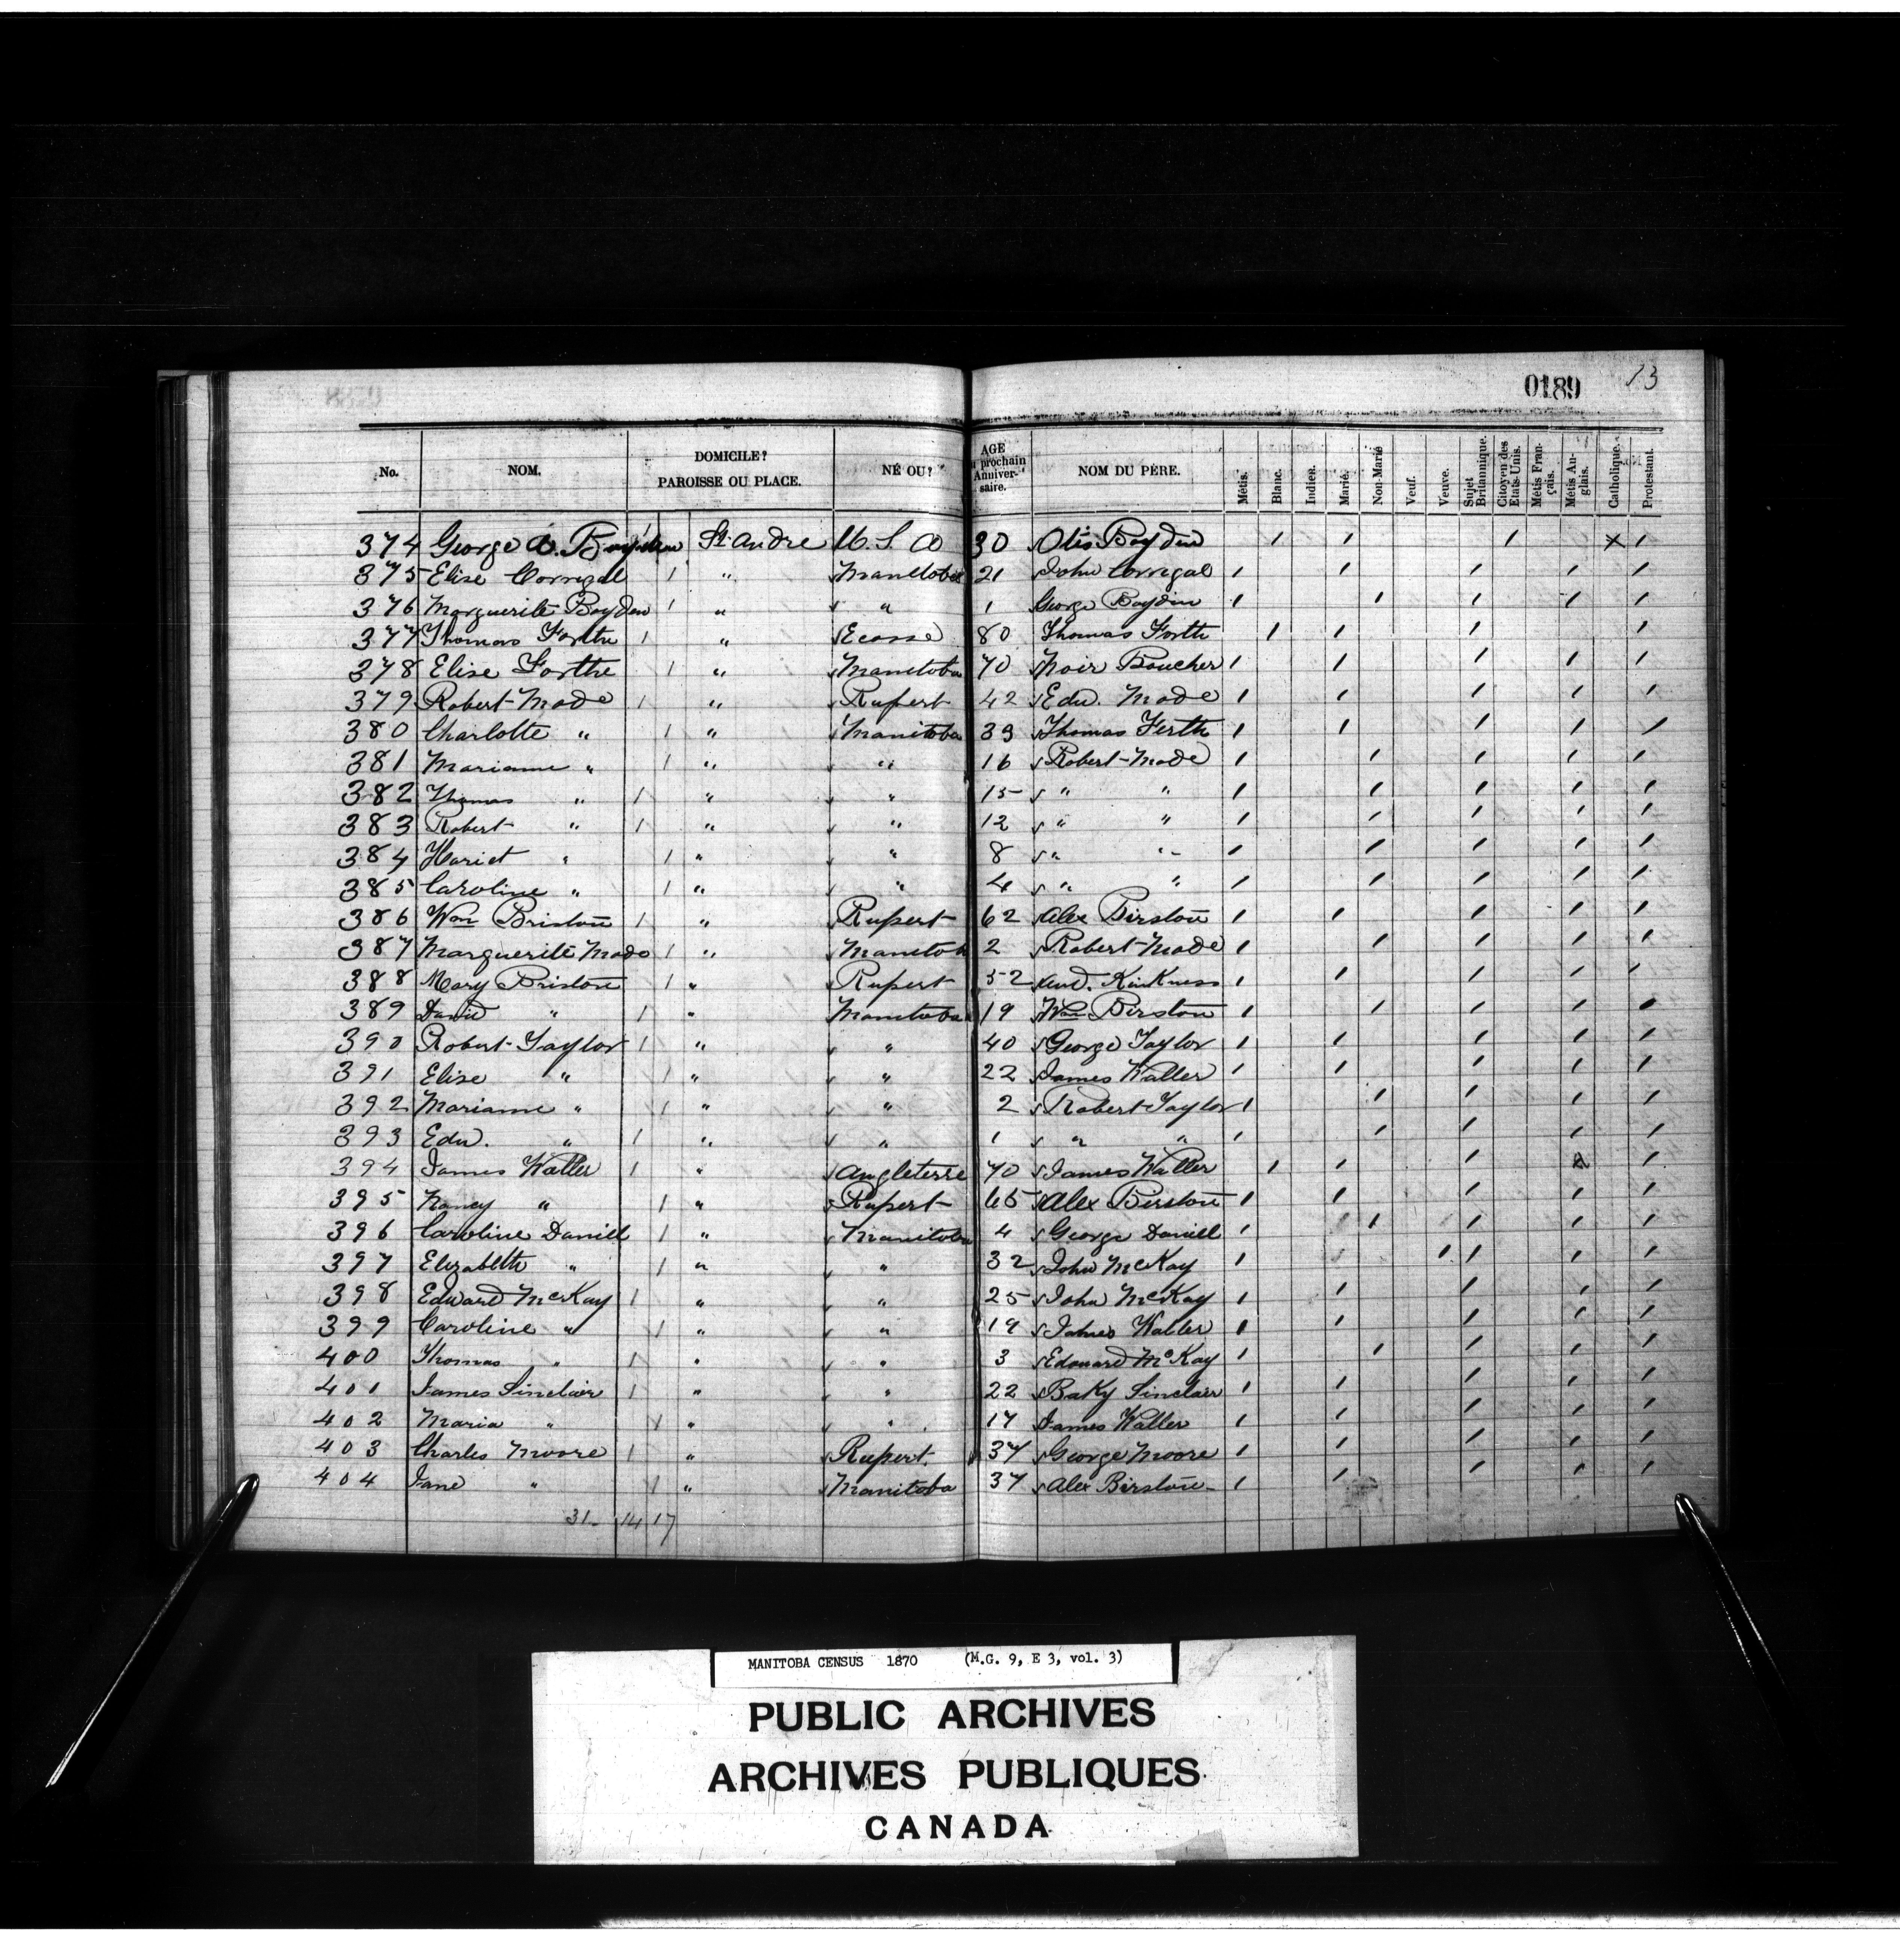 0189 13
No. NOM. DOMICILE? PAROISSE OU PLACE. NÉ OU? AGE au prochain Anniversaire. NOM DU PÈRE. Métis. Blanc. Indien. Marié. Non-Marié Veuf. Veuve. Sujet Britannique. Citoyen des Etats-Unis. Métis Français. Métis Anglais. Catholique. Protestant.
374 George A. Boyden 1 St. Andre U. S. A 30 Otis Boyden 1 1 1 x 1
375 Elise Corrigal 1 " Manitoba 21 John Corrigal 1 1 1 1 1
376 Marguerite Boyden 1 " " 1 George Boyden 1 1 1 1 1
377 Thomas Forth 1 " Ecosse 80 Thomas Forth 1 1 1 1
378 Elise Forthe 1 " Manitoba 70 Noir Boucher 1 1 1 1 1
379 Robert Mode 1 " Rupert 42 Edw. Mode 1 1 1 1 1
380 Charlotte " 1 " Manitoba 39 Thomas Ferth 1 1 1 1 1
381 Marianne " 1 " " 16 Robert Mode 1 1 1 1 1
382 Thomas " 1 " " 15 " " 1 1 1 1 1
383 Robert " 1 " " 12 " " 1 1 1 1 1
384 Hariet " 1 " " 8 " " 1 1 1 1 1
385 Caroline " 1 " " 4 " " 1 1 1 1 1
386 Wm Briston 1 " Rupert 62 Alex Birston 1 1 1 1 1
387 Marguerite Mode 1 " Manitoba 2 Robert Mode 1 1 1 1 1
388 Mary Briston 1 " Rupert 52 And. Kirkness 1 1 1 1 1
389 David " 1 " Manitoba 19 Wm Birston 1 1 1 1 1
390 Robert Taylor 1 " " 40 George Taylor 1 1 1 1 1
391 Elise " 1 " " 22 James Waller 1 1 1 1 1
392 Marianne " 1 " " 2 Robert Taylor 1 1 1 1 1
393 Edw. " 1 " " 1 " " 1 1 1 1 1
394 James Waller 1 " Angleterre 70 James Waller 1 1 1 1
395 Nancy " 1 " Rupert 65 Alex Birston 1 1 1 1 1
396 Caroline Daniell 1 " Manitoba 4 George Daniell 1 1 1 1 1
397 Elizabeth " 1 " " 32 John McKay 1 1 1 1 1
398 Edward McKay 1 " " 25 John McKay 1 1 1 1 1
399 Caroline " 1 " " 19 James Waller 1 1 1 1 1
400 Thomas " 1 " " 3 Edouard McKay 1 1 1 1 1
401 James Sinclair 1 " " 22 Baky Sinclair 1 1 1 1 1
402 Maria " 1 " " 17 James Waller 1 1 1 1 1
403 Charles Moore 1 " Rupert. 37 George Moore 1 1 1 1 1
404 Jane " 1 " Manitoba 37 Alex Birston 1 1 1 1 1
31 14 17
MANITOBA CENSUS 1870 (M.G. 9, E 3, vol. 3)
PUBLIC ARCHIVES
ARCHIVES PUBLIQUES
CANADA